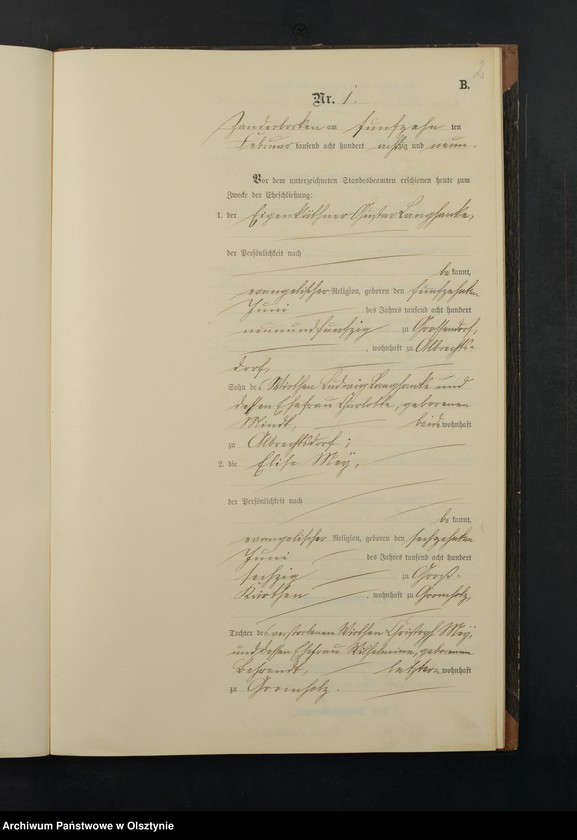 2
B.
Nr. 1.
Sanderbrken am fünfzehn ten
Februar tausend acht hundert achtzig und neun.
Vor dem unterzeichneten Standesbeamten erschienen heute zum
Zwecke der Eheschließung:
1. der Eigenkäthner Gustav Langhanke,
der Persönlichkeit nach
be kannt,
evangelischer Religion, geboren den fünfzehnten
Juni des Jahres tausend acht hundert
neunundfünfzig zu Grossendorf,
, wohnhaft zu Albrechts-
dorf,
Sohn des Wirthen Ludwig Langhanke und
dessen Ehefrau Charlotte, geborenen
Mindt, beide wohnhaft
zu Albrechtsdorf;
2. die Elise Mey,
der Persönlichkeit nach
be kannt,
evangelischer Religion, geboren den sechzehnten
Juni des Jahres tausend acht hundert
sechzig zu Groß-
Kärthen, wohnhaft zu Gromholz,
Tochter des verstorbenen Wirthen Christoph Mey,
und dessen Ehefrau Wilhelmine, geborenen
Behrendt, letztere wohnhaft
zu Gromholz.
Archiwum Państwowe w Olsztynie